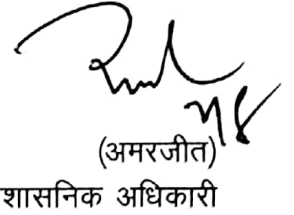 (अमरजीत)
शासनिक अधिकारी